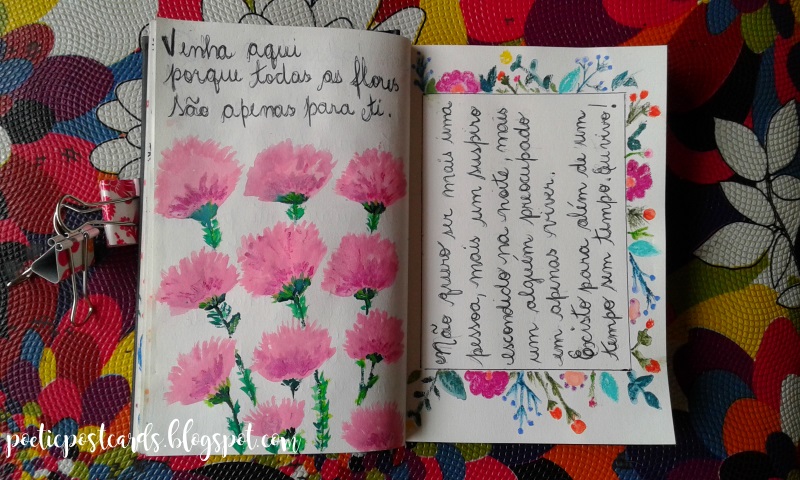 Venha aqui
porque todas as flores
são apenas para ti.
Não quero ser mais uma
pessoa, mais um suspiro
escondido na noite, mais
um alguém preocupado
em apenas viver.
Existo para além de um
tempo sem tempo. Eu vivo!
poeticpostcards.blogspot.com